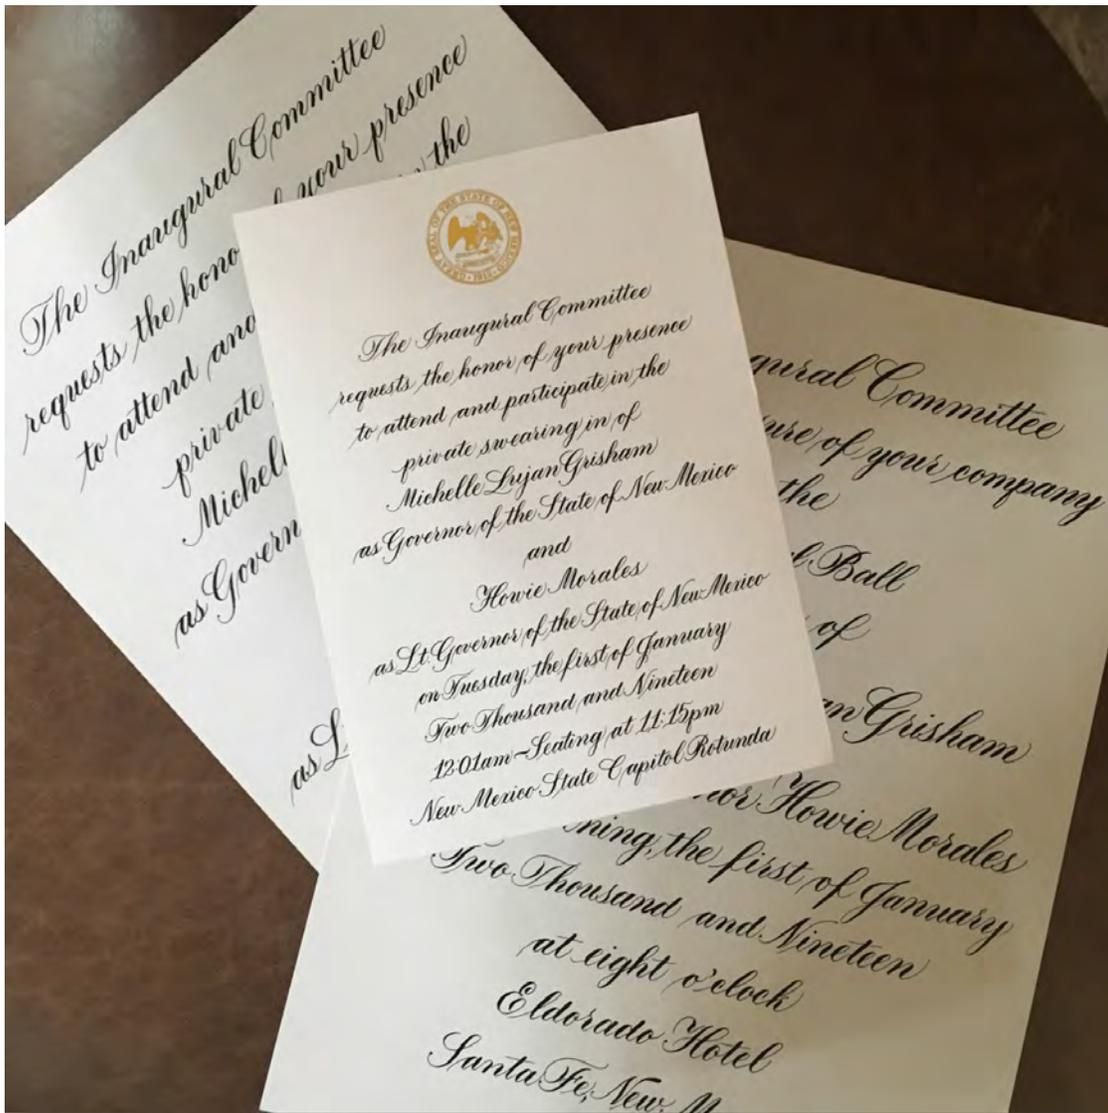 The Inaugural Committee
requests the hono
your presence
to attend and
in the
private
Michell
as Govern
as L
GREAT SEAL OF THE STATE OF NEW MEXICO
1912
The Inaugural Committee
requests the honor of your presence
to attend and participate in the
private swearing in of
Michelle Lujan Grisham
as Governor of the State of New Mexico
and
Howie Morales
as Lt. Governor of the State of New Mexico
on Tuesday, the first of January
Two Thousand and Nineteen
12:01am-Seating at 11:15pm
New Mexico State Capitol Rotunda
gural Committee
ure of your company
the
l Ball
of
an Grisham
nor Howie Morales
ning, the first of January
Two Thousand and Nineteen
at eight o'clock
Eldorado Hotel
Santa Fe, New M